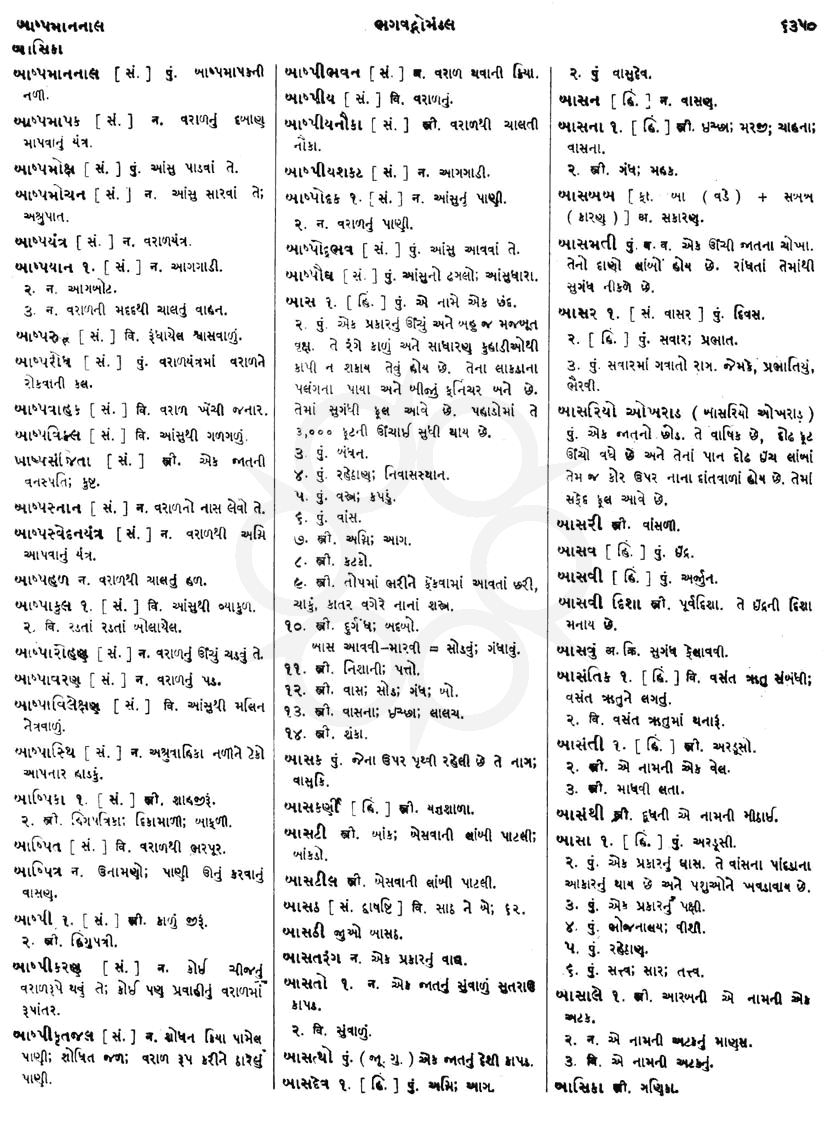 બાષ્પમાનનાલ ભગવદ્ગોમંડલ ૬૩૫૦
બાસિકા
બાષ્પમાનનાલ [ સં. ] પું. બાષ્પમાપકની
નળી.
બાષ્પમાપક [ સં. ] ન. વરાળનું દબાણ
માપવાનું યંત્ર.
બાષ્પમોક્ષ [ સં. ] પું. આંસુ પાડવાં તે.
બાષ્પમોચન [ સં. ] ન. આંસુ સારવાં તે;
અશ્રુપાત.
બાષ્પયંત્ર [ સં. ] ન. વરાળયંત્ર.
બાષ્પયાન ૧. [ સં. ] ન. આગગાડી.
૨. ન. આગબોટ.
૩. ન. વરાળની મદદથી ચાલતું વાહન.
બાષ્પરુદ્ધ [ સં. ] વિ. રૂંધાયેલ શ્વાસવાળું.
બાષ્પરોધ [ સં. ] પું. વરાળયંત્રમાં વરાળને
રોકવાની કલ.
બાષ્પવાહક [ સં. ] વિ. વરાળ ખેંચી જનાર.
બાષ્પવિક્લ [ સં. ] વિ. આંસુથી ગળગળું.
બાષ્પસીંજતા [ સં. ] સ્ત્રી. એક જાતની
વનસ્પતિ; કુષ્ટ.
બાષ્પસ્નાન [ સં. ] ન. વરાળનો નાસ લેવો તે.
બાષ્પસ્વેદનયંત્ર [ સં. ] ન. વરાળથી અગ્નિ
આપવાનું યંત્ર.
બાષ્પહળ ન. વરાળથી ચાલતું હળ.
બાષ્પાકુલ ૧. [ સં. ] વિ. આંસુથી વ્યાકુળ.
૨. વિ. રડતાં રડતાં બોલાયેલ.
બાષ્પારોહણ [ સં. ] ન. વરાળનું ઊંચું ચડવું તે.
બાષ્પાવરણ [ સં. ] ન. વરાળનું પડ.
બાષ્પાવિલેક્ષણ [ સં. ] વિ. આંસુથી મલિન
નેત્રવાળું.
બાષ્પાસ્થિ [ સં. ] ન. અશ્રુવાહિકા નળીને ટેકો
આપનાર હાડકું.
બાષ્પિકા ૧. [ સં. ] સ્ત્રી. શાહજીરું.
૨. સ્ત્રી. હિંગપત્રિકા; ડિકામાળી; બાફળી.
બાષ્પિત [ સં. ] વિ. વરાળથી ભરપૂર.
બાષ્પિત્ર ન. ઉનામણો; પાણી ઊનું કરવાનું
વાસણ.
બાષ્પી ૧. [ સં. ] સ્ત્રી. કાળું જીરું.
૨. સ્ત્રી. હિંગુપત્રી.
બાષ્પીકરણ [ સં. ] ન. કોઈ ચીજનું
વરાળરૂપે થવું તે; કોઈ પણ પ્રવાહીનું વરાળમાં
રૂપાંતર.
બાષ્પીકૃતજલ [ સં. ] ન. શોધન ક્રિયા પામેલ
પાણી; શોધિત જળ; વરાળ રૂપ કરીને ઠારેલું
પાણી.
બાષ્પીભવન [ સં. ] ન. વરાળ થવાની ક્રિયા.
બાષ્પીય [ સં. ] વિ. વરાળનું.
બાષ્પીયનૌકા [ સં. ] સ્ત્રી. વરાળથી ચાલતી
નૌકા.
બાષ્પીયશકટ [ સં. ] ન. આગગાડી.
બાષ્પોદક ૧. [ સં. ] ન. આંસુનું પાણી.
૨. ન. વરાળનું પાણી.
બાષ્પોદ્ભવ [ સં. ] પું. આંસુ આવવાં તે.
બાષ્પૌઘ [ સં. ] પું. આંસુનો ઢગલો; આંસુધારા.
બાસ ૧. [ હિં. ] પું. એ નામે એક છંદ.
૨. પું. એક પ્રકારનું ઊંચું અને બહુ જ મજબૂત
વૃક્ષ. તે રંગે કાળું અને સાધારણ કુહાડીઓથી
કાપી ન શકાય તેવું હોય છે. તેના લાકડાના
પલંગના પાયા અને બીજું ફર્નિચર બને છે.
તેમાં સુગંધી ફૂલ આવે છે. પહાડોમાં તે
૩,૦૦૦ ફૂટની ઊંચાઈ સુધી થાય છે.
૩. પું. બંધન.
૪. પું. રહેઠાણ; નિવાસસ્થાન.
૫. પું. વસ્ત્ર; કપડું.
૬. પું. વાંસ.
૭. સ્ત્રી. અગ્નિ; આગ.
૮. સ્ત્રી. કટકો.
૯. સ્ત્રી. તોપમાં ભરીને ફેંકવામાં આવતાં છરી,
ચાકું, કાતર વગેરે નાનાં શસ્ત્ર.
૧૦. સ્ત્રી. દુર્ગંધ; બદબો.
બાસ આવવી-મારવી = સોડવું; ગંધાવું.
૧૧. સ્ત્રી. નિશાની; પત્તો.
૧૨. સ્ત્રી. વાસ; સોડ; ગંધ; બો.
૧૩. સ્ત્રી. વાસના; ઇચ્છા; લાલચ.
૧૪. સ્ત્રી. શંકા.
બાસક પું. જેના ઉપર પૃથ્વી રહેલી છે તે નાગ;
વાસુકિ.
બાસકર્ણી [ હિં. ] સ્ત્રી. યજ્ઞશાળા.
બાસટી સ્ત્રી. બાંક; બેસવાની લાંબી પાટલી;
બાંકડો.
બાસટીલ સ્ત્રી. બેસવાની લાંબી પાટલી.
બાસઠ [ સં. દ્વાષષ્ટિ ] વિ. સાઠ ને બે; ૬૨.
બાસઠી જુઓ બાસઠ.
બાસતરંગ ન. એક પ્રકારનું વાદ્ય.
બાસતો ૧. ન. એક જાતનું સુંવાળું સુતરાઉ
કાપડ.
૨. વિ. સુંવાળું.
બાસત્થો પું. ( જૂ. ગુ. ) એક જાતનું દેશી કાપડ.
બાસદેવ ૧. [ હિં. ] પું. અગ્નિ; આગ.
૨. પું વાસુદેવ.
બાસન [ હિં. ] ન. વાસણ.
બાસના ૧. [ હિં. ] સ્ત્રી. ઇચ્છા; મરજી; ચાહના;
વાસના.
૨. સ્ત્રી. ગંધ; મહક.
બાસબબ [ ફા. બા ( વડે ) + સબબ
( કારણ ) ] અ. સકારણ.
બાસમતી પું. બ. વ. એક ઊંચી જાતના ચોખા.
તેનો દાણો લાંબો હોય છે. રાંધતાં તેમાંથી
સુગંધ નીકળે છે.
બાસર ૧. [ સં. વાસર ] પું. દિવસ.
૨. [ હિં. ] પું. સવાર; પ્રભાત.
૩. પું. સવારમાં ગવાતો રાગ. જેમકે, પ્રભાતિયું,
ભૈરવી.
બાસરિયો ઓખરાડ ( બાસરિયો ઓખરાડ )
પું. એક જાતનો છોડ. તે વાર્ષિક છે, દોઢ ફૂટ
ઊંચો વધે છે અને તેનાં પાન દોઢ ઇંચ લાંબાં
તેમ જ કોર ઉપર નાના દાંતવાળાં હોય છે. તેમાં
સફેદ ફૂલ આવે છે.
બાસરી સ્ત્રી. વાંસળી.
બાસવ [ હિં. ] પું. ઇંદ્ર.
બાસવી [ હિં. ] પું. અર્જુન.
બાસવી દિશા સ્ત્રી. પૂર્વદિશા. તે ઇંદ્રની દિશા
મનાય છે.
બાસવું અ. ક્રિ. સુગંધ ફેલાવવી.
બાસંતિક ૧. [ હિં. ] વિ. વસંત ઋતુ સંબંધી;
વસંત ઋતુને લગતું.
૨. વિ. વસંત ઋતુમાં થનારું.
બાસંતી ૧. [ હિં. ] સ્ત્રી. અરડૂસો.
૨. સ્ત્રી. એ નામની એક વેલ.
૩. સ્ત્રી. માધવી લતા.
બાસંથી સ્ત્રી. દૂધની એ નામની મીઠાઈ.
બાસા ૧. [ હિં. ] પું. અરડૂસી.
૨. પું. એક પ્રકારનું ઘાસ. તે વાંસના પાંદડાના
આકારનું થાય છે અને પશુઓને ખવડાવાય છે.
૩. પું. એક પ્રકારનું પક્ષી.
૪. પું. ભોજનાલય; વીશી.
૫. પું. રહેઠાણ.
૬. પું. સત્ત્વ; સાર; તત્ત્વ.
બાસાલે ૧. સ્ત્રી. આરબની એ નામની એક
અટક.
૨. ન. એ નામની અટકનું માણસ.
૩. વિ. એ નામની અટકનું.
બાસિકા સ્ત્રી. ગણિકા.